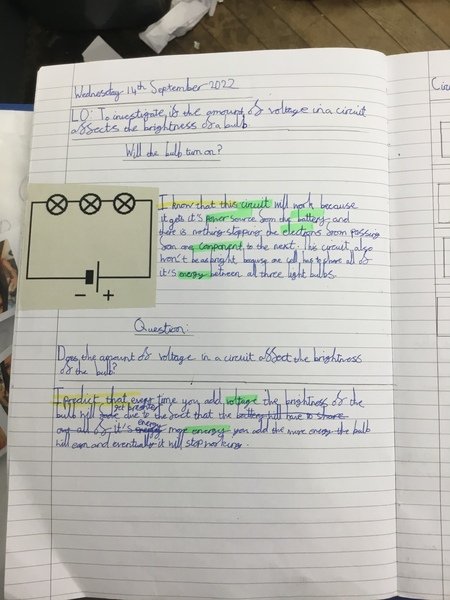 Wednesday 14th September 2022
LO: To investigate if the amount of voltage in a circuit
affects the brightness of a bulb.
Will the bulb turn on?
I know that this circuit will work because
it gets it's power source from the battery and
there is nothing stopping the electrons from passing
from one component to the next. This circuit also
won't be as bright because one cell has to share all of
it's energy between all three light bulbs.
- +
Question:
Does the amount of voltage in a circuit affect the brightness
of the bulb?
I predict that every time you add voltage the brightness of the
get brighter
bulb will due to the fact that the battery will have to share
energy
out all of it's more energy you add the more energy the bulb
will earn and eventually it will stop working.
Cir